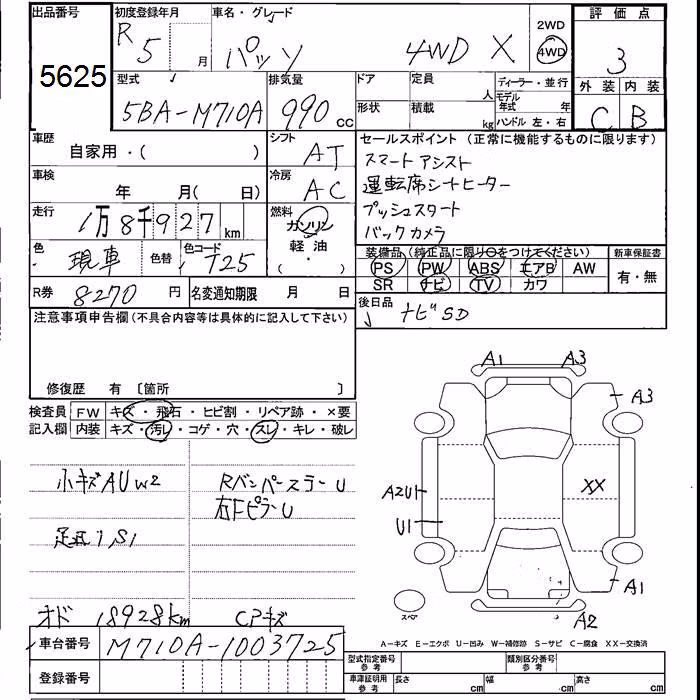 出品番号
5625
初度登録年月
R 5 月
車名・グレード
パッソ 4WD X
2WD
4WD
評価点
3
外装 内装
C B
型式
5BA-M710A
排気量
990 cc
ドア
形状
定員 人
積載 kg
ディーラー・並行
モデル年式 年
ハンドル 左・右
車歴
自家用・( )
シフト
AT
車検
年 月( 日)
冷房
AC
走行
1万8千927 km
燃料
ガソリン
軽油
( ・ )
色
現車
色替
色コード
T25
R券 8270 円
名変通知期限 月 日
セールスポイント(正常に機能するものに限ります)
スマートアシスト
運転席シートヒーター
プッシュスタート
バックカメラ
装備品(純正品に限り○をつけてください)
PS PW ABS エアB AW
SR ナビ TV カワ
新車保証書
有・無
後日品
ナビSD
注意事項申告欄(不具合内容等は具体的に記入して下さい)
修復歴 有〔箇所 〕
検査員記入欄
FW キズ・飛石・ヒビ割・リペア跡・×要
内装 キズ・汚レ・コゲ・穴・スレ・キレ・破レ
小キズAUW2
S1
オド 18928km
RバンパースラーU
右FピラーU
CPキズ
A1 A3
A3
A2U1
U1
XX
A1
A2
スペア
A-キズ E-エクボ U-凹み W-補修跡 S-サビ C-腐食 XX-交換済
車台番号
M710A-1003725
登録番号
型式指定番号 参考
類別区分番号 参考
車庫証明用 参考
長さ cm 幅 cm 高さ cm